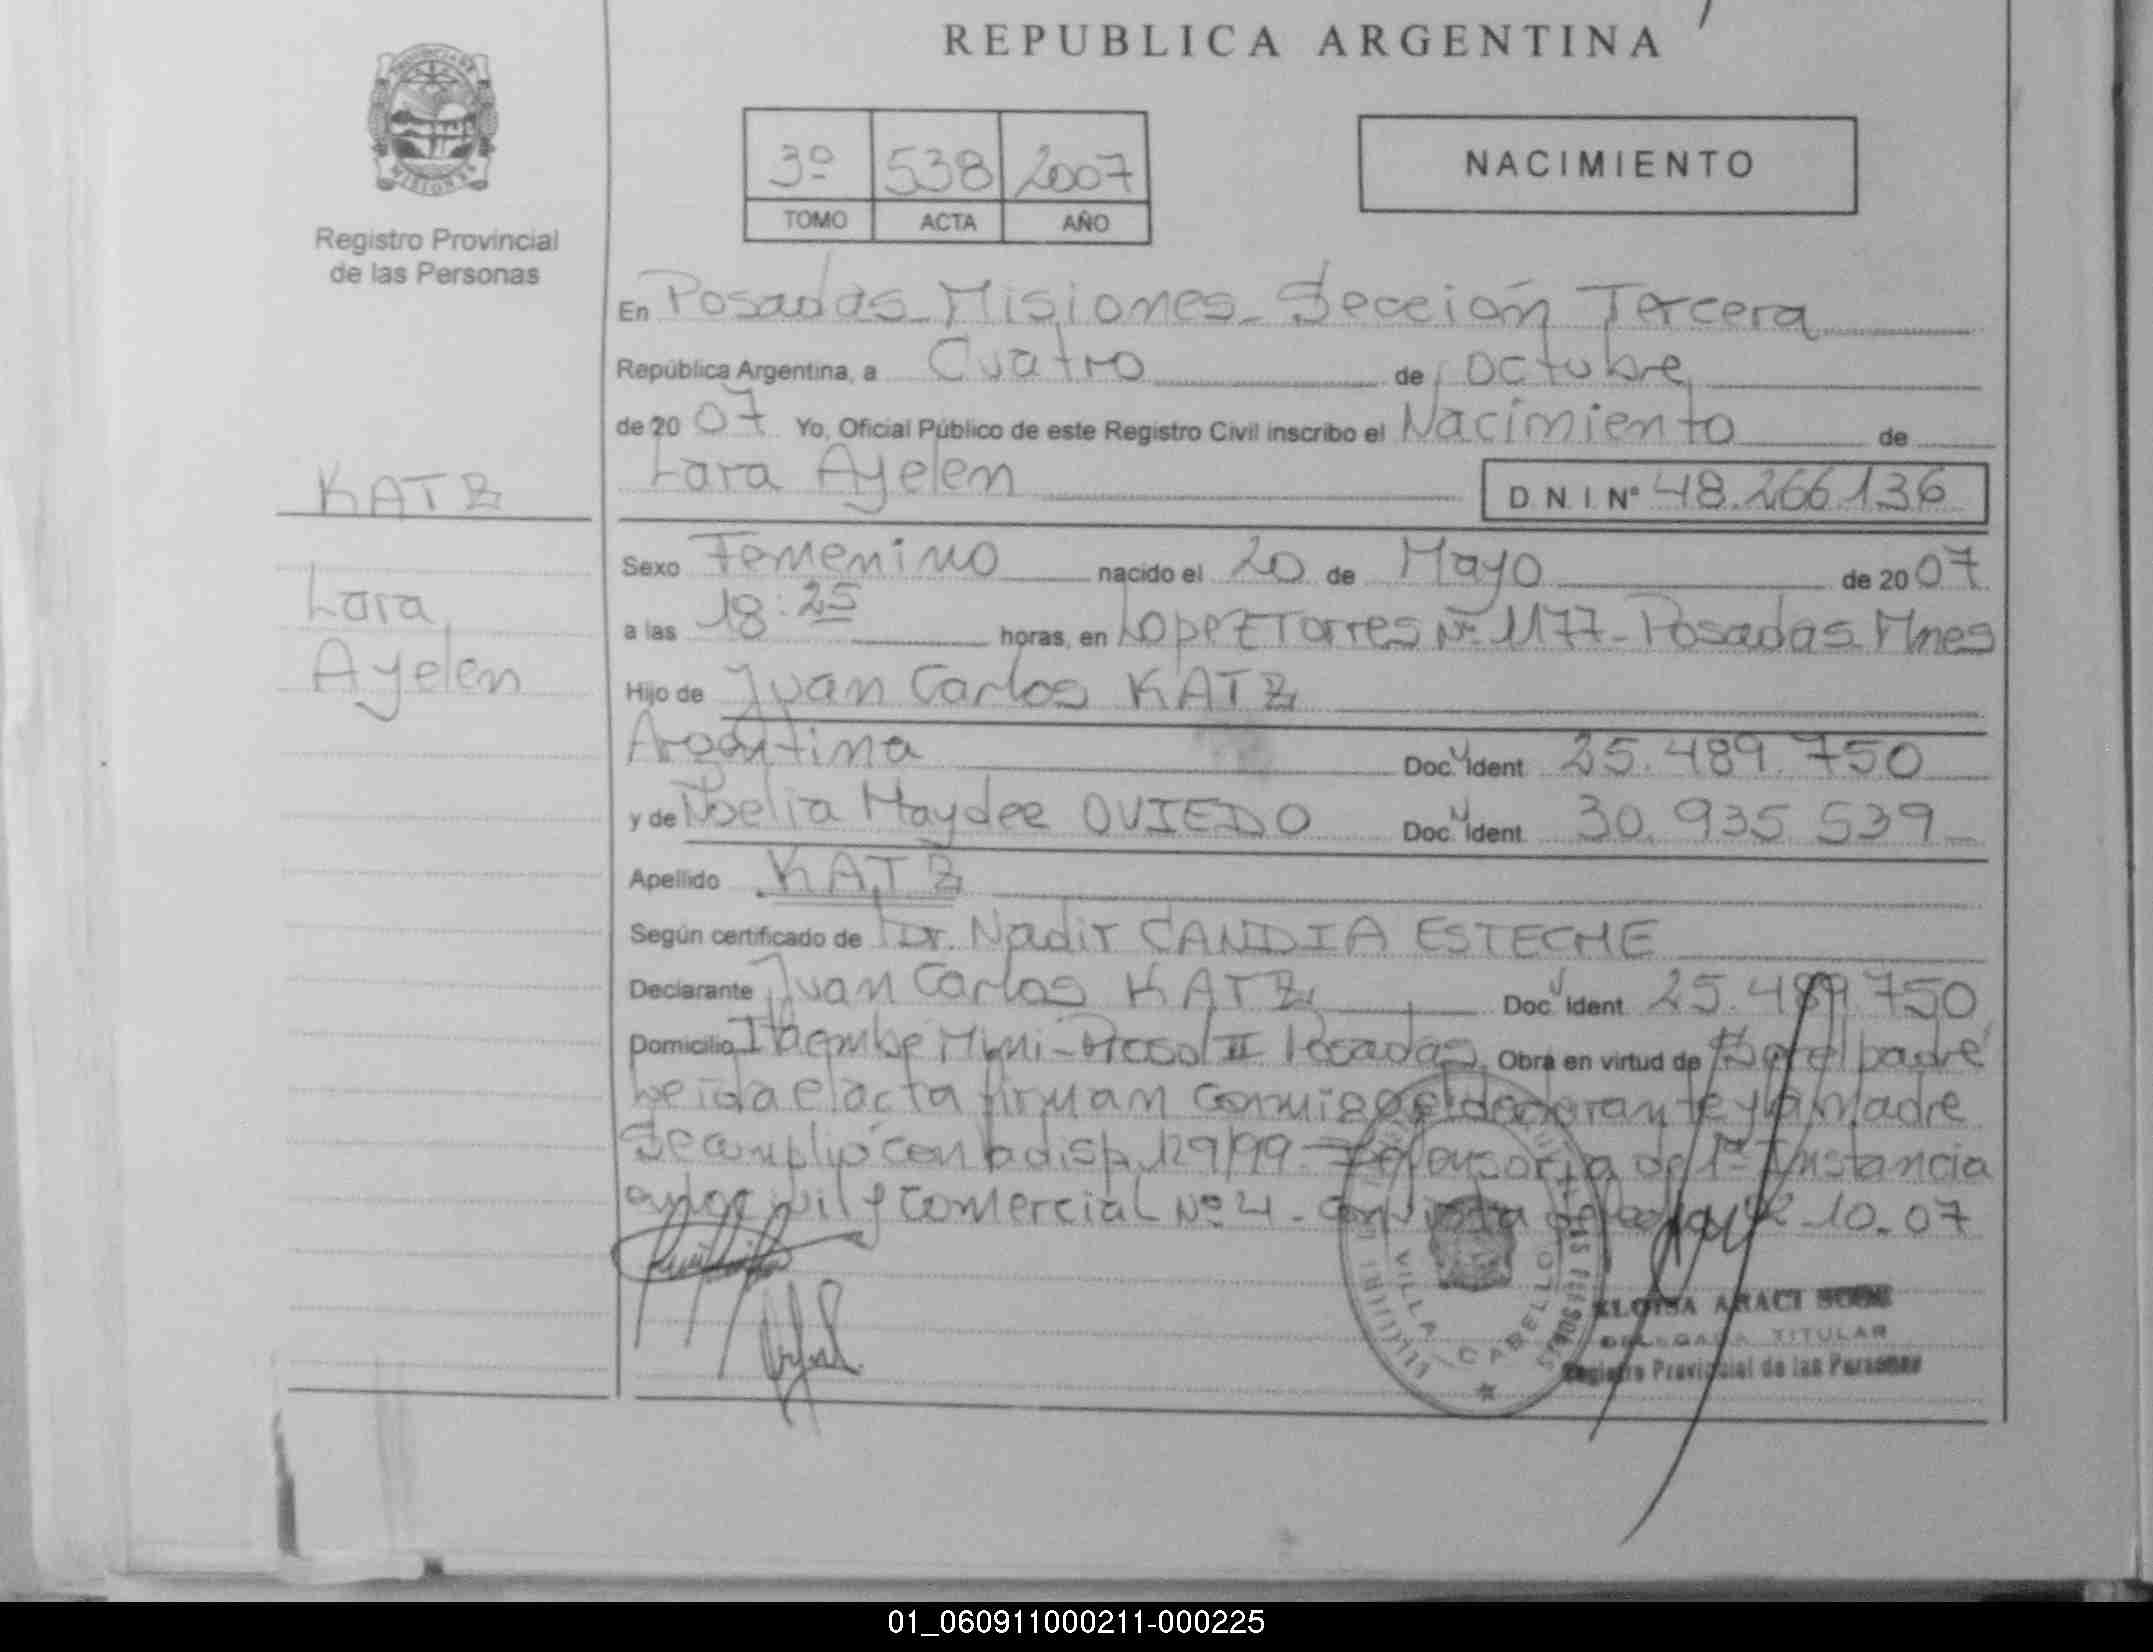 REPUBLICA ARGENTINA
PROVINCIA DE MISIONES
Registro Provincial
de las Personas
3º 538 2007
TOMO ACTA AÑO
NACIMIENTO
En Posadas - Misiones - Sección Tercera
República Argentina, a Cuatro de octubre
de 2007 Yo, Oficial Público de este Registro Civil inscribo el Nacimiento de
Lara Ayelen D.N.I. Nº 48.266.136
KATZ
Lara
Ayelen
Sexo Femenino nacido el 20 de Mayo de 2007
a las 18:25 horas, en Lopez Torres Nº 1177 - Posadas Mnes
Hijo de Juan Carlos KATZ
Argentina Doc. Ident 25.489.750
y de Noelia Haydee OVIEDO Doc. Ident 30.935.539
Apellido KATZ
Según certificado de Dr. Nadir CANDIA ESTECHE
Declarante Juan Carlos KATZ Doc. Ident 25.489.750
Domicilio Itaembe Mini - II Posadas Obra en virtud de el padre
Leida el acta firman conmigo el declarante y la Madre
Se cumplió con la disp. 129/99 - Defensoria de 1º Instancia
en lo civil y Comercial Nº 4 - 10.07
VILLA CABELLO
ELOISA ARACI
DELEGADA TITULAR
Registro Provincial de las Personas
01_060911000211-000225